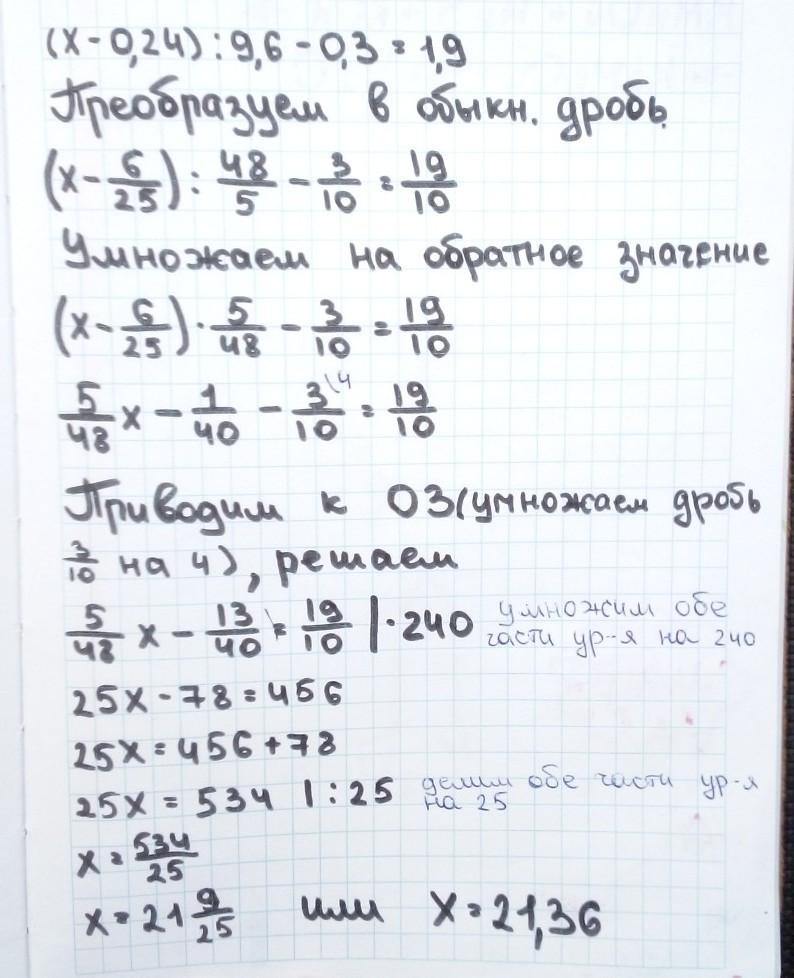 (x - 0,24) : 9,6 - 0,3 = 1,9
Преобразуем в обыкн. дробь.
(x - 6/25) : 48/5 - 3/10 = 19/10
Умножаем на обратное значение
(x - 6/25) · 5/48 - 3/10 = 19/10
5/48 x - 1/40 - 3/10 \4 = 19/10
Приводим к ОЗ (умножаем дробь
3/10 на 4), решаем
5/48 x - 13/40 \ = 19/10 | · 240 умножим обе
части ур-я на 240
25x - 78 = 456
25x = 456 + 78
25x = 534 | : 25 делим обе части ур-я
на 25
x = 534/25
x = 21 9/25 или x = 21,36